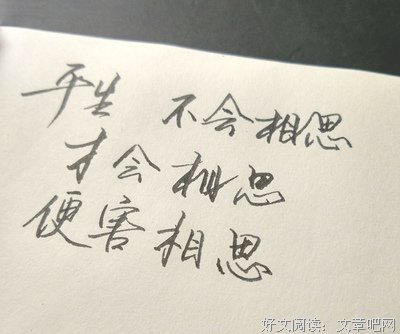 平生 不会相思
才会相思
便害相思
好文阅读：文章吧网